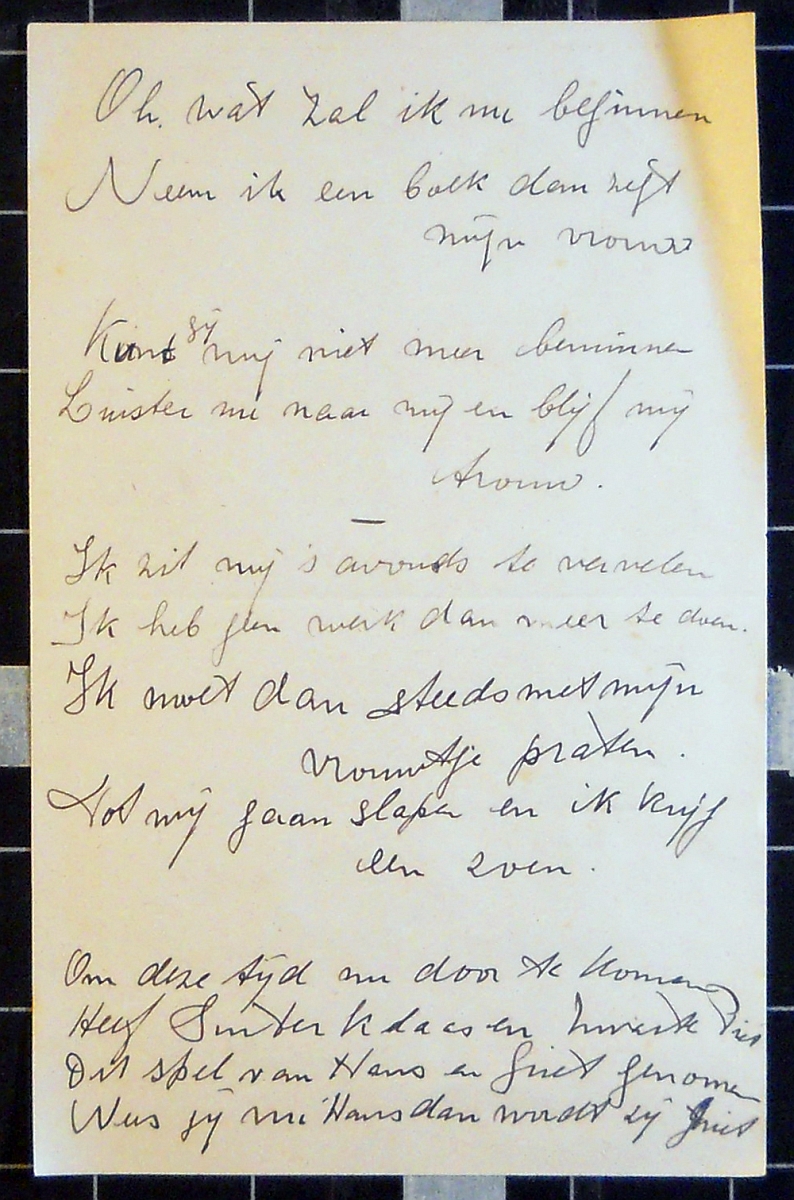 Oh, wat zal ik nu beginnen
Neem ik een boek dan zegt
mijn vrouw
Kunt gij mij niet meer beminnen
Luister nu naar mij en blijf mij
trouw.
—
Ik zit mij 's avonds te vervelen
Ik heb geen werk dan meer te doen.
Ik moet dan steeds met mijn
vrouwtje praten.
Tot wij gaan slapen en ik krijg
een zoen.
Om deze tijd nu door te komen
Heef Sinterklaas en zwarte Piet
Dit spel van Hans en Griet genomen
Wees gij nu Hans dan wordt zij Griet